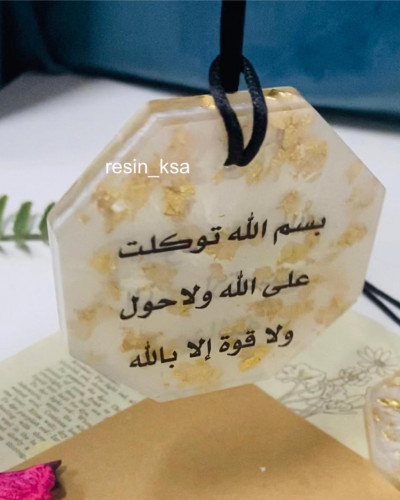 resin_ksa
بسم الله توكلت
على الله ولا حول
ولا قوة إلا بالله